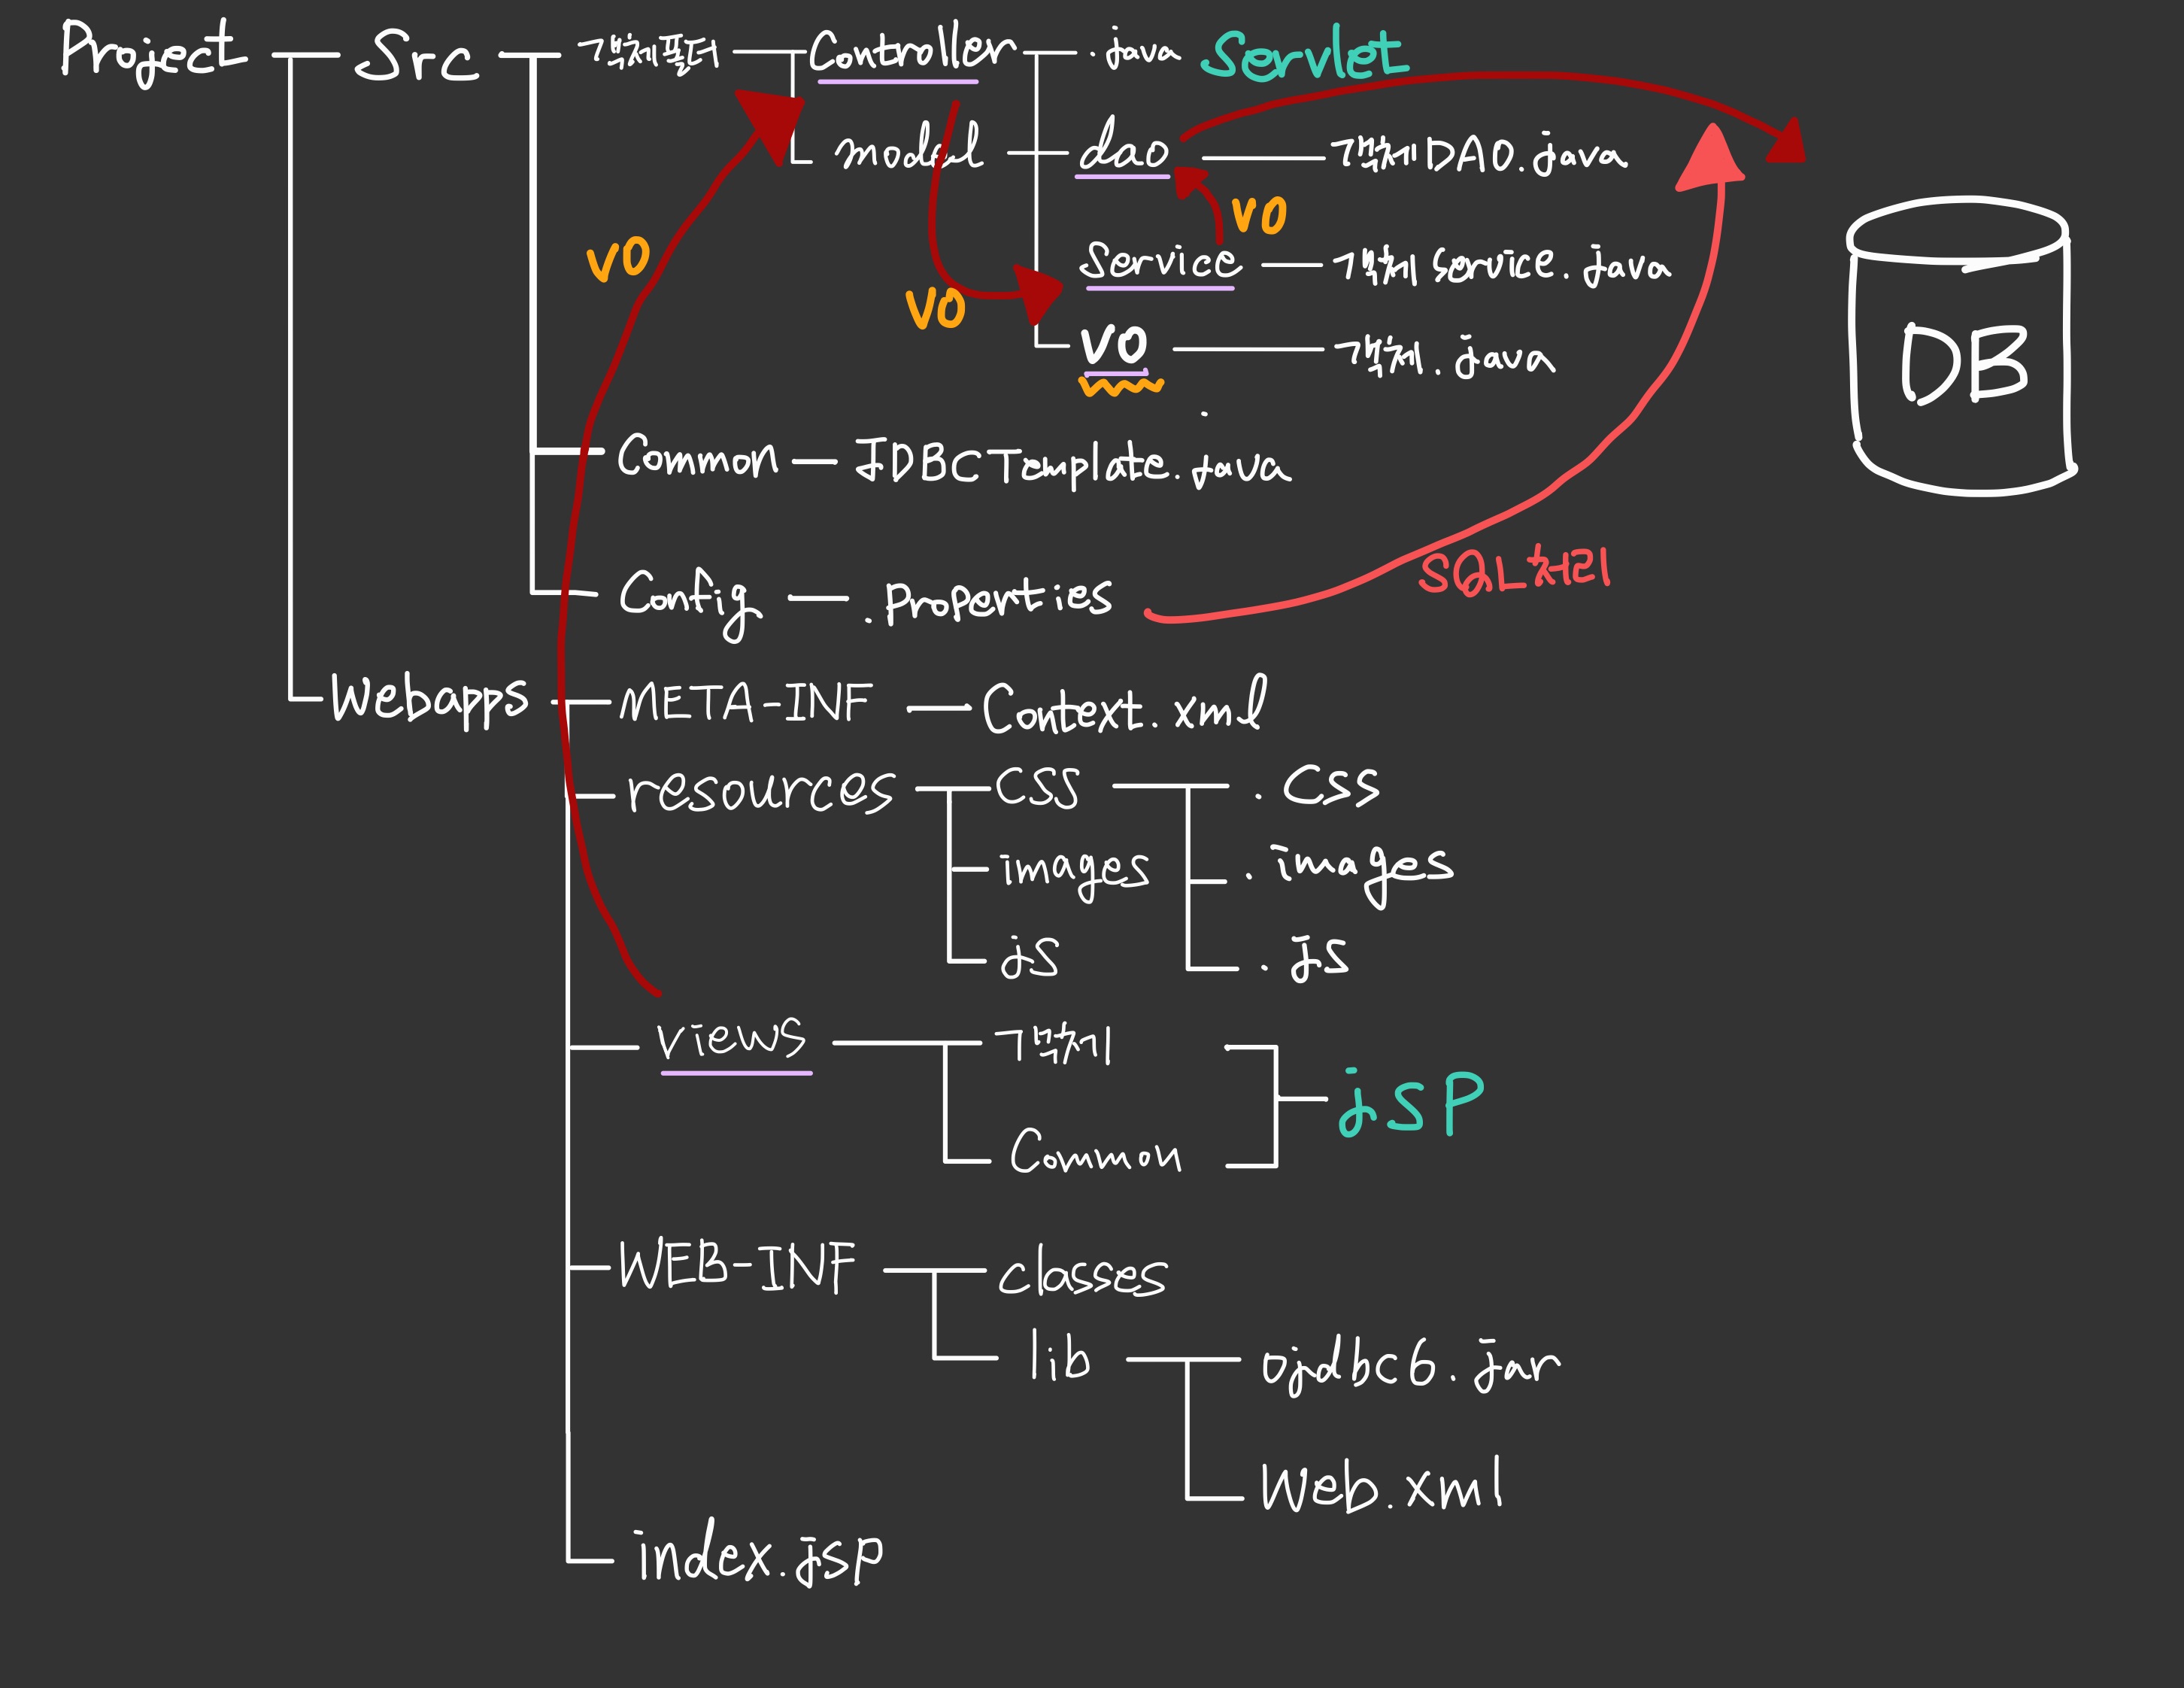 Project Src 객체폴더 Controller .java Servlet
model dao 객체DAO.java
vo
service 객체Service.java
vo
vo
vo 객체.java
DB
Common JDBCTemplate.java
SQL처리
Config .properties
Webapps META-INF Context.xml
resources css .Css
images .images
js .js
views 객체
jSP
Common
WEB-INF classes
lib ojdbc6.jar
Web.xml
index.jsp